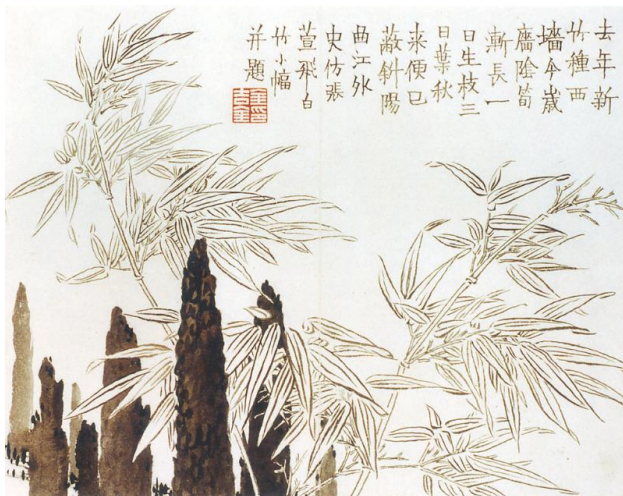 去年新
竹種西
墻今歲
廧陰筍
漸長一
日生枝三
日葉秋
来便已
蔽斜陽
曲江外
史仿張
萱飛白
竹小幅
并題
金印
吉金